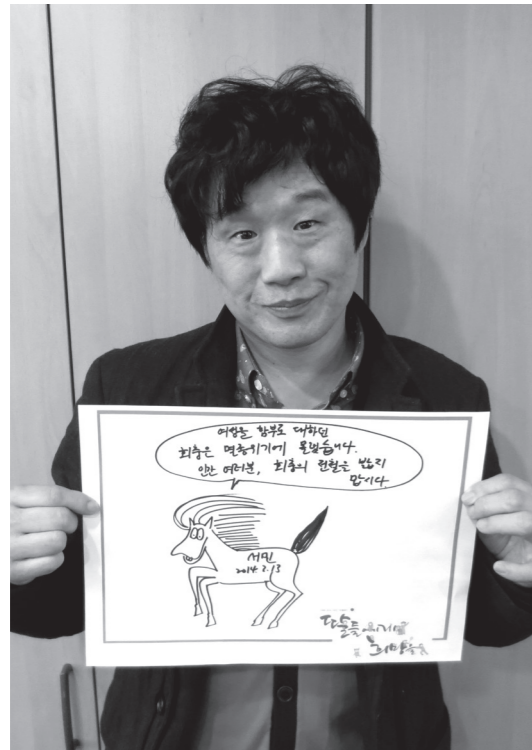 여성을 함부로 대하던
회충은 멸종위기에 몰렸습니다.
인간 여러분, 회충의 전철은 밟지
맙시다.
서민
2014. 2. 13